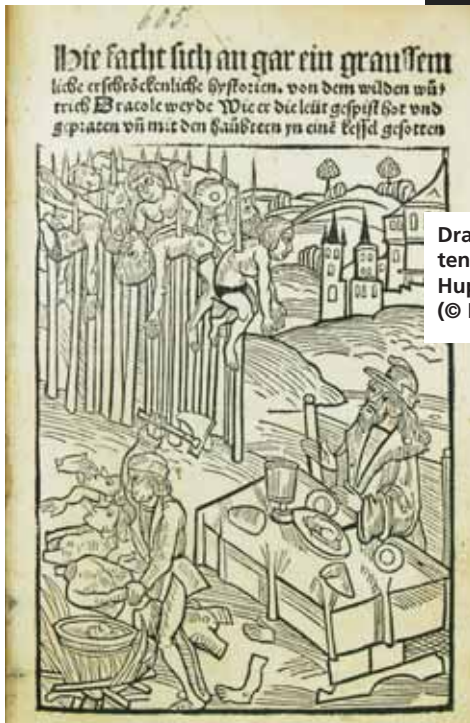 605.
Hie facht sich an gar ein graussem
liche erschröckenliche hystorien. von dem wilden wü-
trich Dracole weyde Wie er die leüt gespist hot vnd
gepraten vñ mit den haübtern yn einē kessel gesotten
Dra
ten
Hup
(©